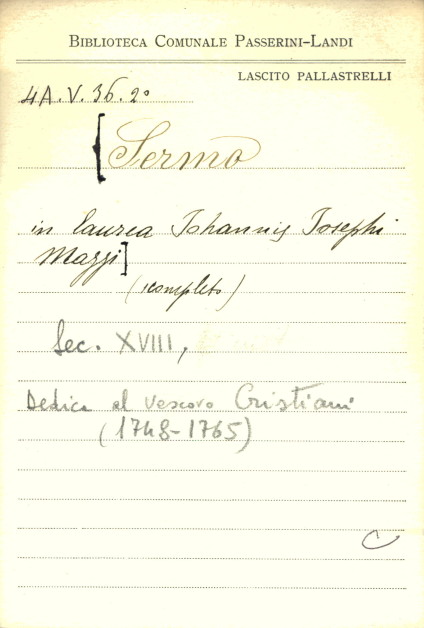 BIBLIOTECA COMUNALE PASSERINI-LANDI
LASCITO PALLASTRELLI
4A.V.36.2°
[Sermo
in laurea Iohannis Iosephi
Mazzi]
(icompleto)
Sec. XVIII,
Dedica al vescovo Cristiani
(1748-1765)
C